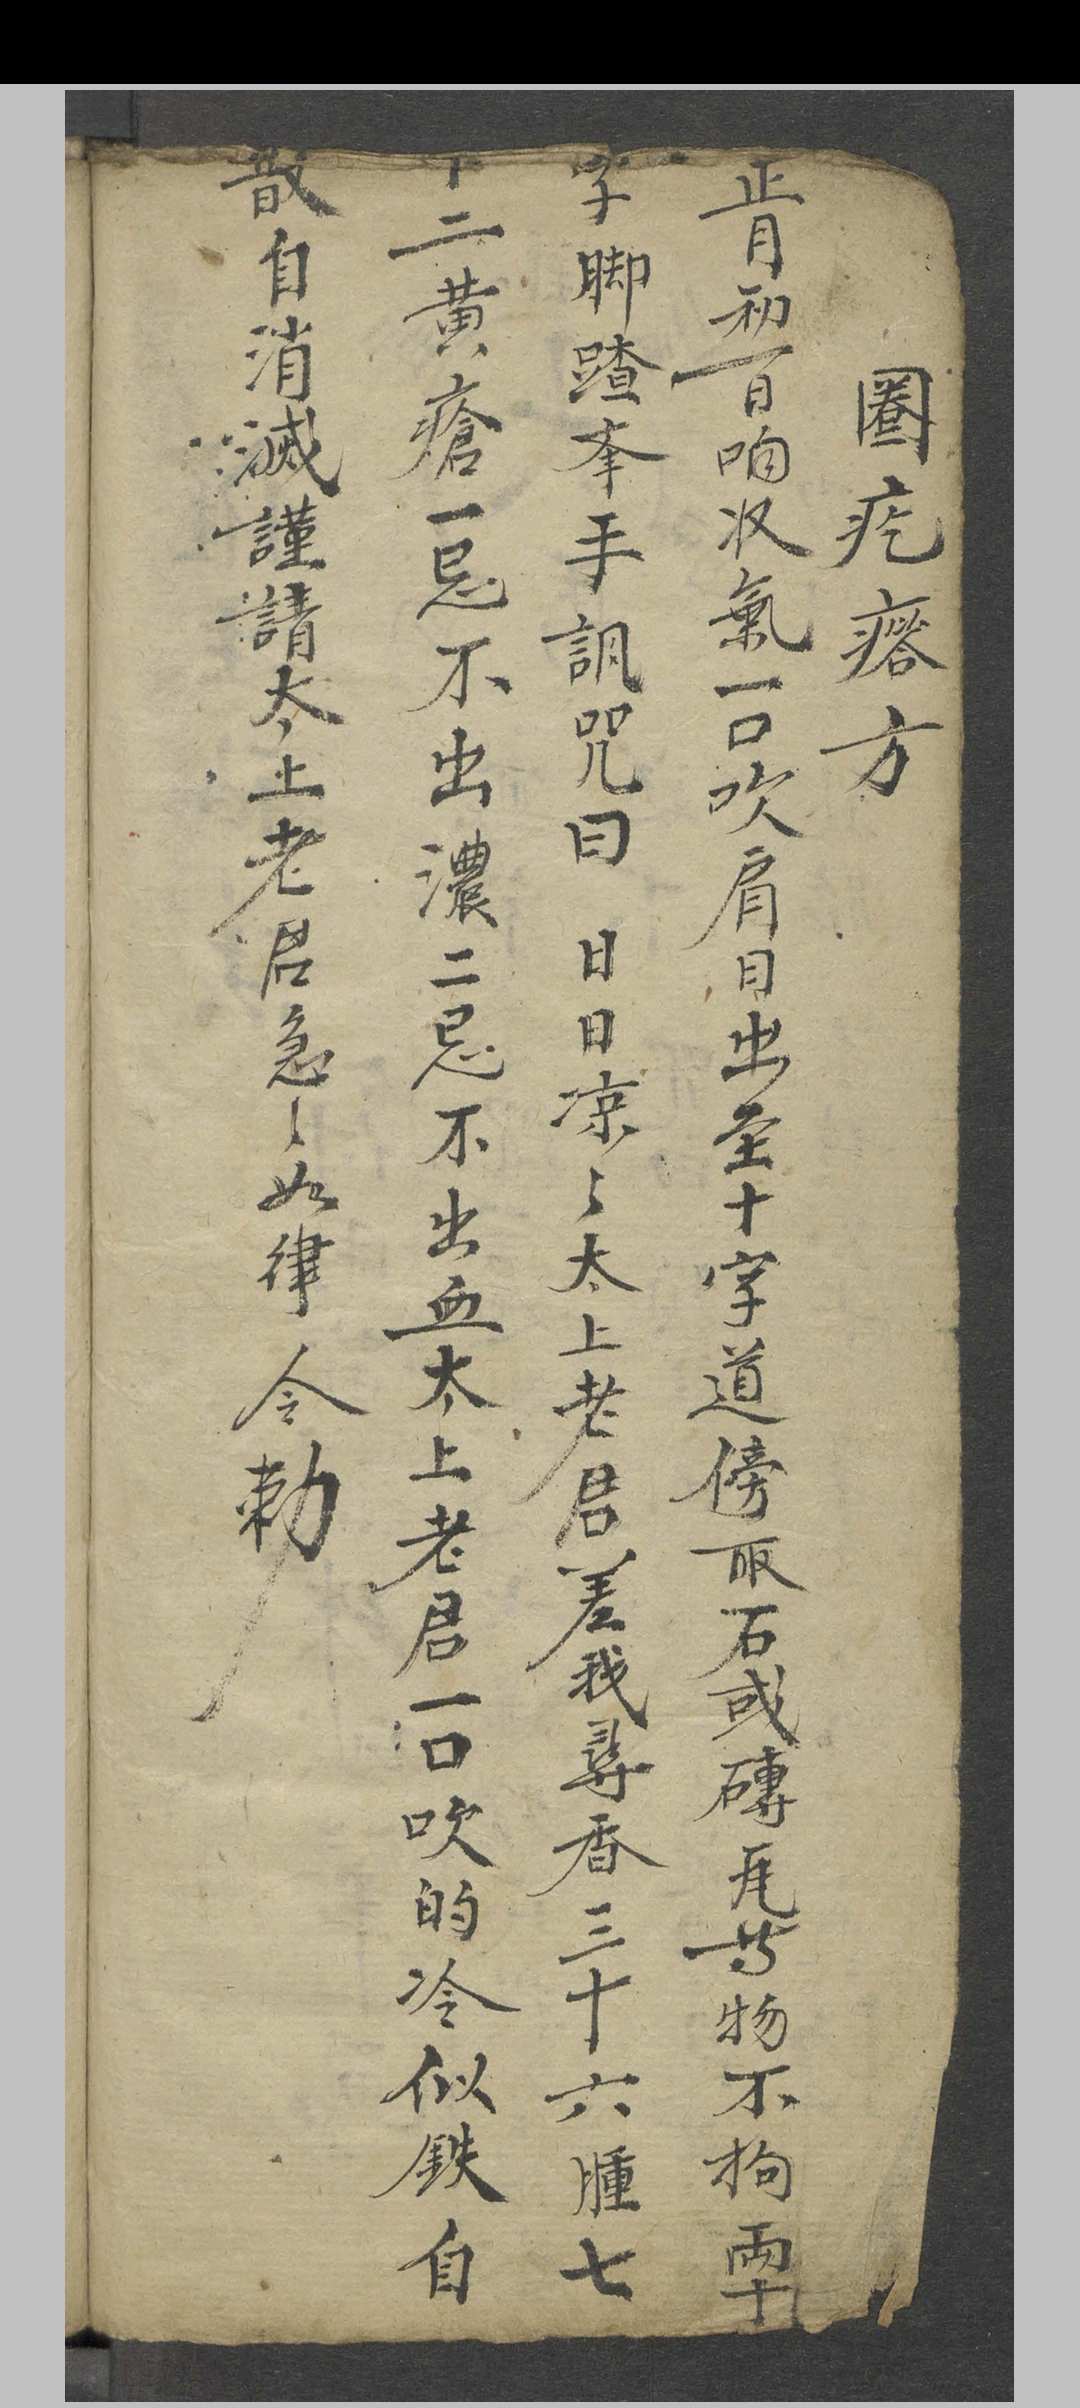 圈疙瘩方
正月初一日向收氣一口吹肩目出至十字道傍取石或磚瓦等物不拘兩十
字脚踏奉手訊咒曰 日日凉〻太上老君差我尋香三十六腫七
十二黄瘡一忌不出濃二忌不出血太上老君一口吹的冷似鉄自
散自消滅謹請太上老君急〻如律令勅